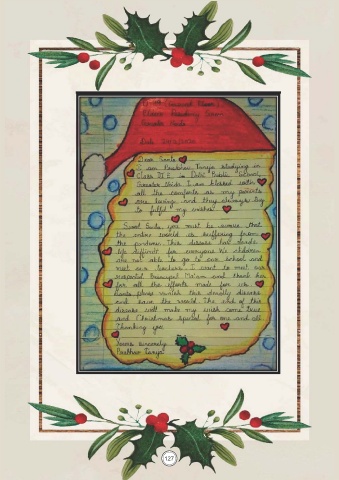 Dear Santa
I am Paukhuri Taneja studying in
class III E in Delhi Public School,
Greater Noida. I am blessed with
all the comforts as my parents
are loving and they always try
to fulfil my wishes.
Sweet Santa, you must be aware that
the entire world is suffering from
the pandemic. This disease has made
life difficult for everyone. We children
are not able to go to our school and
meet our teachers. I want to meet our
respected Principal Ma'am and thank her
for all the efforts made for us.
Santa please vanish this deadly disease
and save the world. The end of this
disease will make my wish come true
and Christmas special for me and all.
Thanking you
Yours sincerely
127